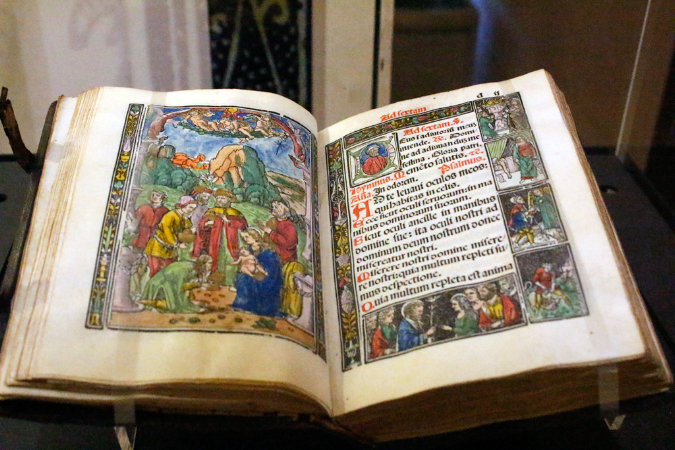 Ad sextam.
Ad sextam.
Deus i adiutoriũ meũ
intende. Domi
ne ad adiuuandũ me
festina. Gloria patri.
Hymnus. Memẽto salutis.
Aña. In odorem. Psalmus.
AD te leuaui oculos meos:
qui habitas in celis.
Ecce sicut oculi seruorum in ma
nibus dominorum suorum.
Sicut oculi ancille in manibus
domine sue: ita oculi nostri ad
dominum deum nostrum donec
misereatur nostri.
Miserere nostri domine misere
re nostri: quia multum repleti su
mus despectione.
Quia multum repleta est anima